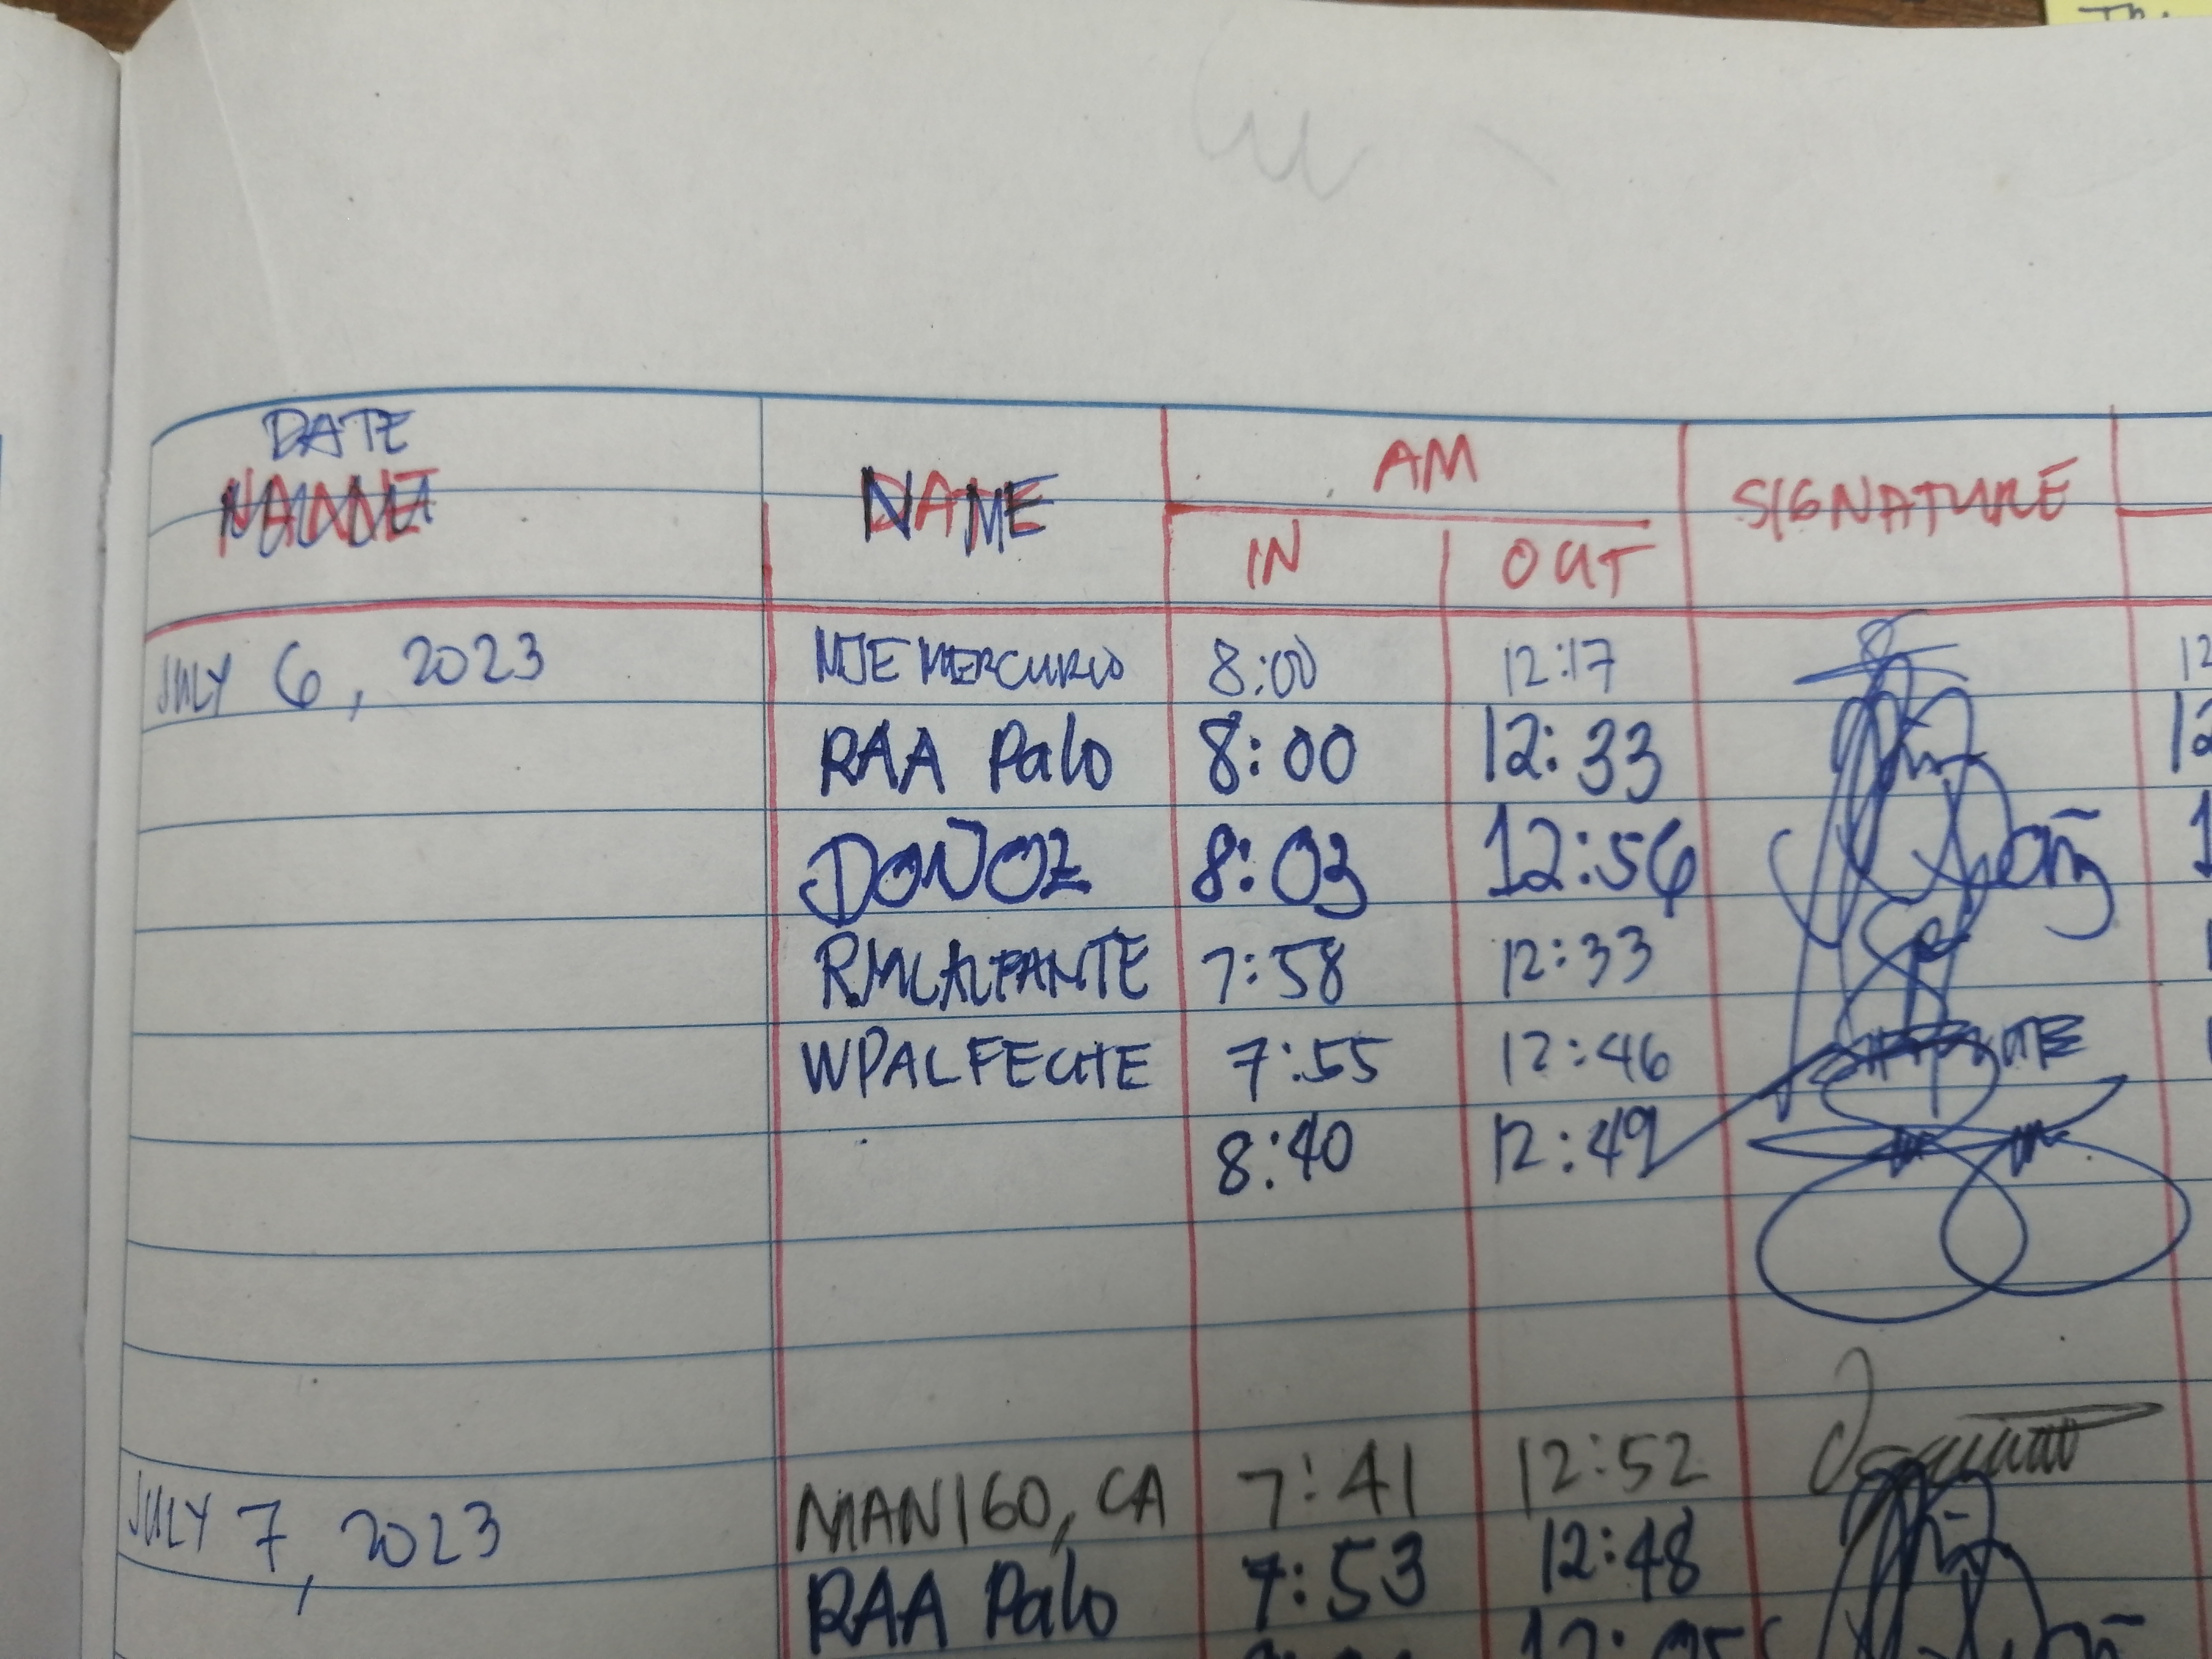 DATE
NAME AM SIGNATURE
IN OUT
JULY 6, 2023 MJE MERCURIO 8:00 12:17
RAA Palo 8:00 12:33 12
DOÑOZ 8:03 12:56
7:58 12:33
WPALFECHE 7:55 12:46
8:40 12:49
JULY 7, 2023 MANIGO, CA 7:41 12:52
RAA Palo 7:53 12:48